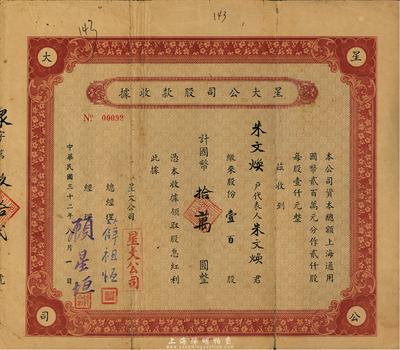 143
143
星
大
公
司
星大公司股款收據
No 00092
本公司資本總額上海通用
國幣貳百萬元分作貳仟股
每股壹仟元整
茲收到
朱文煐戶代表人朱文煐君
繳來股份壹百股
計國幣拾萬圓整
憑本收據領取股息紅利
此據
星大公司
星大公司
總經理
經
顧星垣
中華民國三十二年八月一日